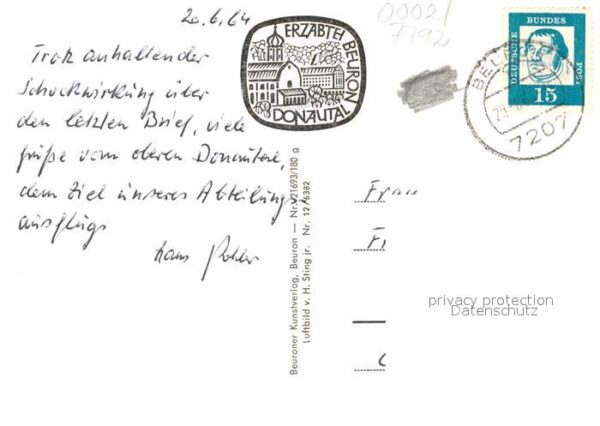 20.6.64
Trotz anhaltender
Schockwirkung über
den letzten Brief, viele
Grüße vom oberen Donautal,
dem Ziel unseres Abteilungs-
ausflugs
Hans
ERZABTEI BEURON
DONAUTAL
0002/
7192
DEUTSCHE BUNDESPOST
15
BEURON
7207
Beuroner Kunstverlag, Beuron — Nr. V21693/180 g
Luftbild v. H. Sting jr. Nr. 12/6382
Frau
privacy protection
Datenschutz